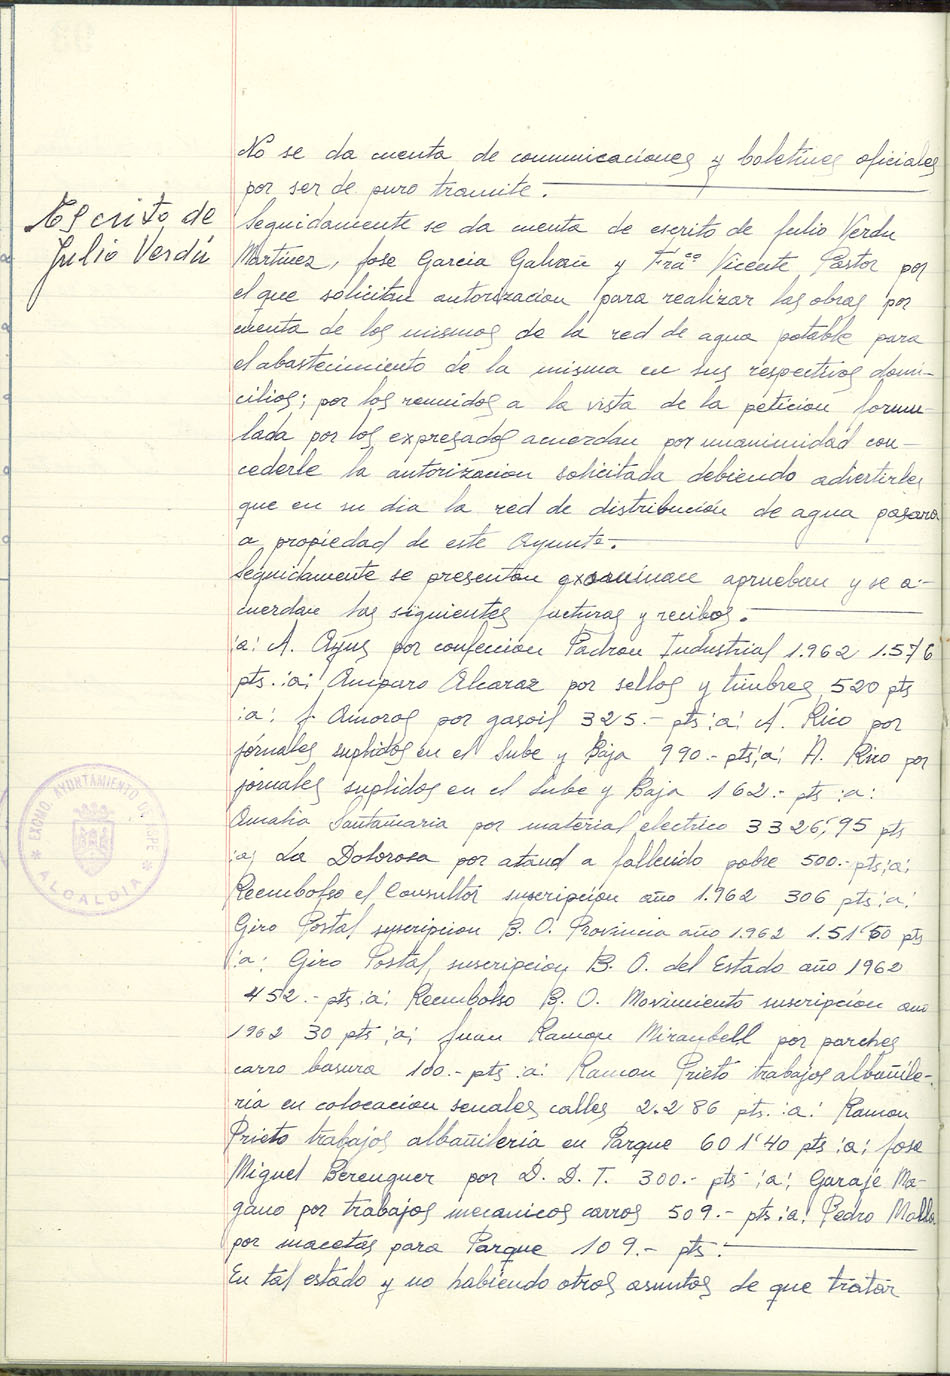 No se da cuenta de comunicaciones y boletines oficiales
por ser de puro tramite.
Escrito de
Julio Verdú
Seguidamente se da cuenta de escrito de Julio Verdu
Martinez, Jose Garcia Galvañ y Frãco Vicente Pastor por
el que solicitan autorizacion para realizar las obras por
cuenta de los mismos de la red de agua potable para
el abastecimiento de la misma en sus respectivos domi-
cilios; por los reunidos a la vista de la peticion formu-
lada por los expresados acuerdan por unanimidad con-
cederle la autorizacion solicitada debiendo advertirles
que en su dia la red de distribución de agua pasara
a propiedad de este Ayunte.
Seguidamente se presentan examinan aprueban y se a-
cuerdan las siguientes facturas y recibos.
:a: A. Ayus por confeccion Padron Industrial 1.962 1.576
pts. :a: Amparo Alcaraz por sellos y timbres 520 pts
:a: J. Amoros por gasoil 325.- pts :a: A. Rico por
jornales suplidos en el Sube y Baja 990.- pts :a: A. Rico por
jornales suplidos en el Sube y Baja 162.- pts :a:
Amalia Santamaria por material electrico 3326,95 pts
:a: La Dolorosa por ataud a fallecido pobre 500.- pts :a:
Reembolso el Consultor suscripcion año 1.962 306 pts :a:
Giro Postal suscripcion B. O. Provincia año 1.962 1.51'50 pts
:a: Giro Postal suscripcion B. O. del Estado año 1962
452.- pts :a: Reembolso B. O. Movimiento suscripcion año
1962 30 pts :a: Juan Ramon Mirambell por parches
carro basura 100.- pts :a: Ramon Prieto trabajos albañile-
ria en colocacion senales calles 2.286 pts. :a: Ramon
Prieto trabajos albañileria en Parque 601'40 pts :a: Jose
Miguel Berenguer por D. D. T. 300.- pts :a: Garaje Ma-
gano por trabajos mecanicos carros 509.- pts :a: Pedro
por macetas para Parque 109.- pts.
En tal estado y no habiendo otros asuntos de que tratar
EXCMO. AYUNTAMIENTO DE ASPE
* ALCALDIA *